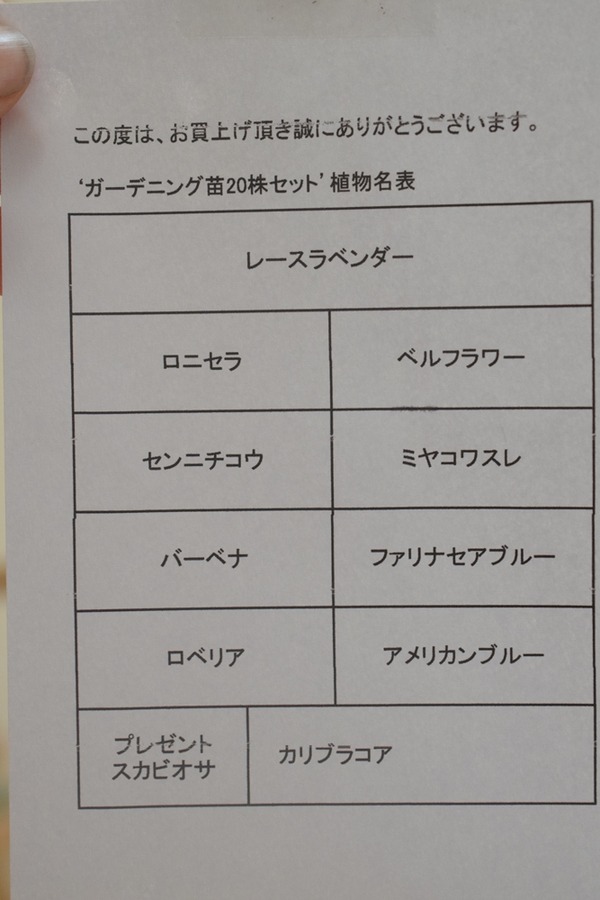 この度は、お買上げ頂き誠にありがとうございます。
‘ガーデニング苗20株セット’植物名表
レースラベンダー
ロニセラ
ベルフラワー
センニチコウ
ミヤコワスレ
バーベナ
ファリナセアブルー
ロベリア
アメリカンブルー
プレゼント
スカビオサ
カリブラコア